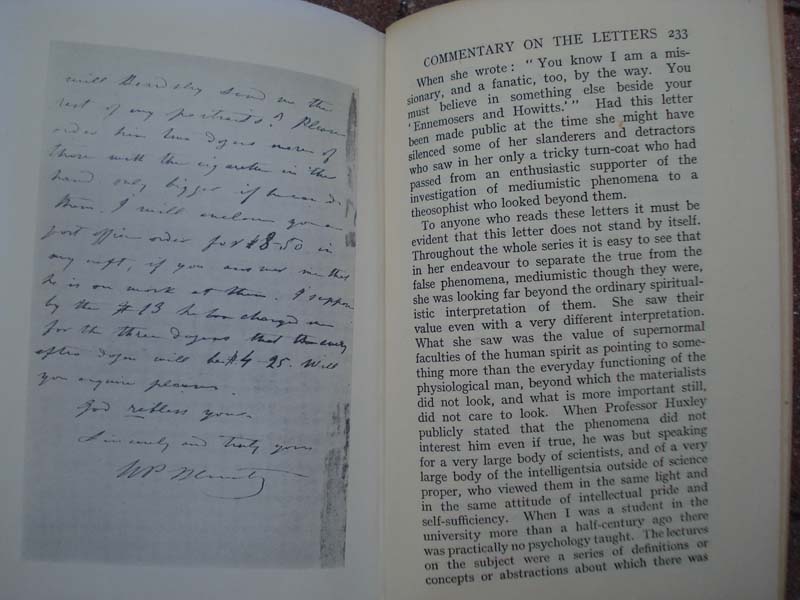 will Beardsly send me the
rest of my portraits? Please
order him two dozens more of
those with the cigarette in the
hand only bigger if he can do
them. I will enclose you a
post office order for $8-50 in
my next, if you answer me that
he is on work at them. I suppose
by the $13 he has charged me
for the three dozens that the every
after dozen will be $4-25. Will
you enquire please.
God rebless you.
Sincerely and truly yours
HPBlavatsky
COMMENTARY ON THE LETTERS 233
When she wrote: "You know I am a mis-
sionary, and a fanatic, too, by the way. You
must believe in something else beside your
'Ennemosers and Howitts.'" Had this letter
been made public at the time she might have
silenced some of her slanderers and detractors
who saw in her only a tricky turn-coat who had
passed from an enthusiastic supporter of the
investigation of mediumistic phenomena to a
theosophist who looked beyond them.
To anyone who reads these letters it must be
evident that this letter does not stand by itself.
Throughout the whole series it is easy to see that
in her endeavour to separate the true from the
false phenomena, mediumistic though they were,
she was looking far beyond the ordinary spiritual-
istic interpretation of them. She saw their
value even with a very different interpretation.
What she saw was the value of supernormal
faculties of the human spirit as pointing to some-
thing more than the everyday functioning of the
physiological man, beyond which the materialists
did not look, and what is more important still,
did not care to look. When Professor Huxley
publicly stated that the phenomena did not
interest him even if true, he was but speaking
for a very large body of scientists, and of a very
large body of the intelligentsia outside of science
proper, who viewed them in the same light and
in the same attitude of intellectual pride and
self-sufficiency. When I was a student in the
university more than a half-century ago there
was practically no psychology taught. The lectures
on the subject were a series of definitions or
concepts or abstractions about which there was